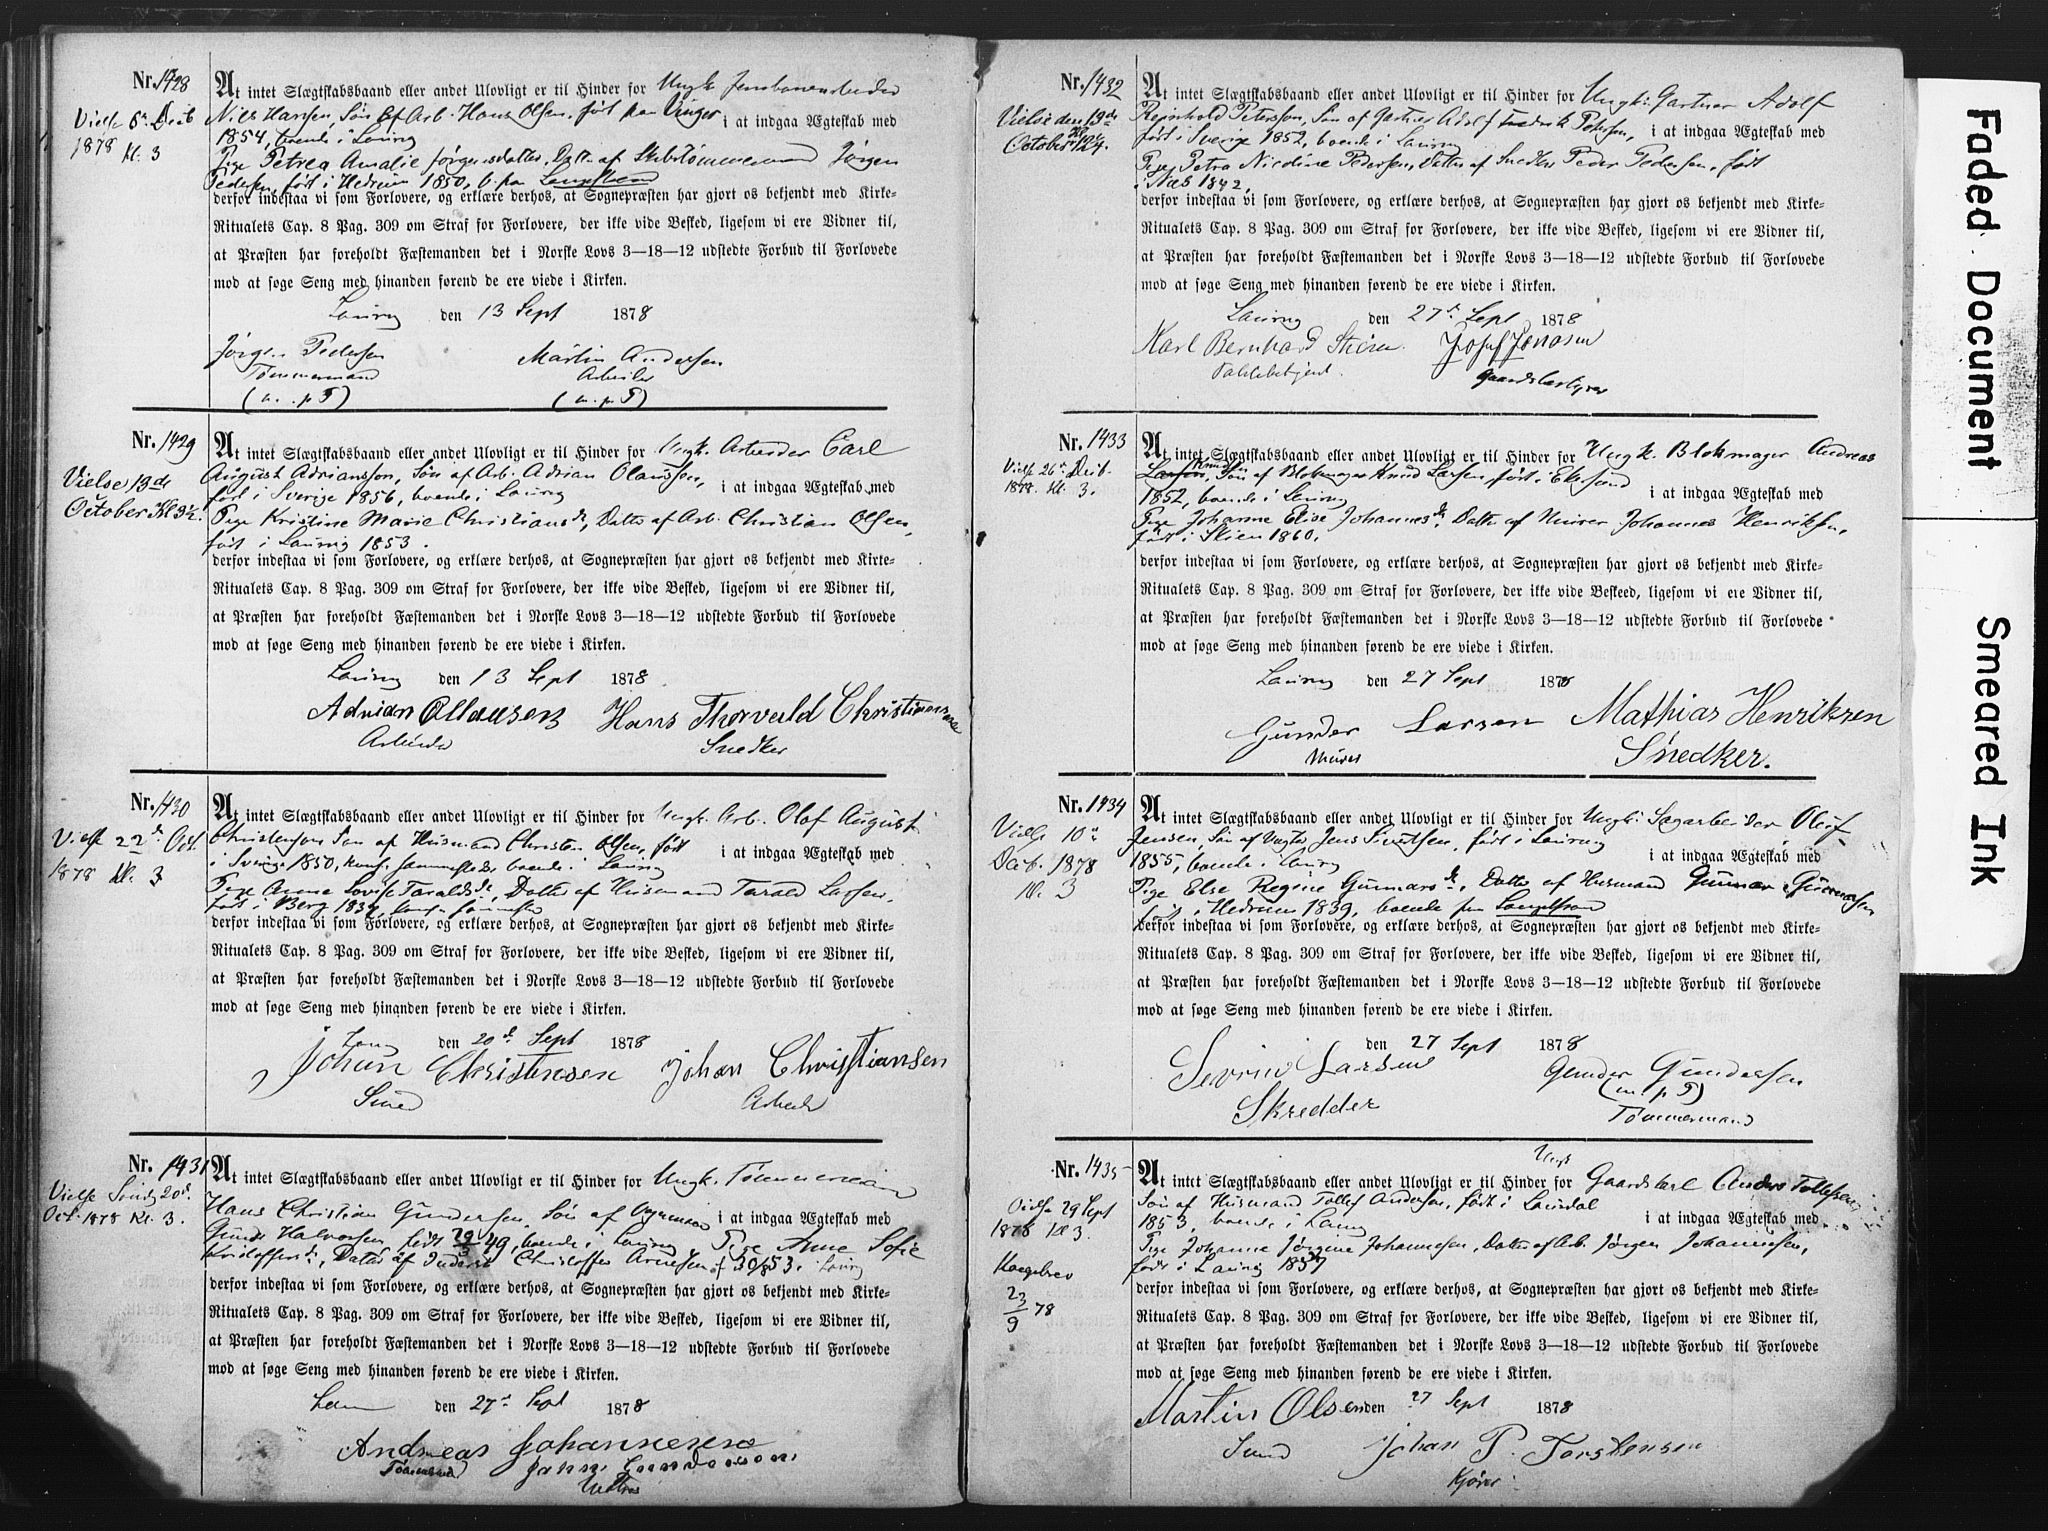 Nr. 1428
At intet Slægtskabsbaand eller andet Ulovligt er til Hinder for Ungk.
Vielse 8de Decb
1878 kl. 3
Niels Hansen, Søn af Arb. Hans Olsen, født paa Vinger i at indgaa Ægteskab med
1854, boende i Laurvig
Pige Petrea Amalie Jørgensdatter, Datter af Skibstømmermand Jørgen
Pedersen, født i Hedrum 1850, b. paa Langestrand
derfor indestaa vi som Forlovere, og erklære derhos, at Sognepræsten har gjort os bekjendt med Kirke-
Ritualets Cap. 8 Pag. 309 om Straf for Forlovere, der ikke vide Besked, ligesom vi ere Vidner til,
at Præsten har foreholdt Fæstemanden det i Norske Lovs 3—18—12 udstedte Forbud til Forlovede
mod at søge Seng med hinanden førend de ere viede i Kirken.
Laurvig den 13 Sept 1878
Jørgen Pedersen Martin Andersen
Tømmermand Arbeider
(m. p. P) (m. p. P)
Nr. 1429
At intet Slægtskabsbaand eller andet Ulovligt er til Hinder for Ungk. Arbeider Carl
Vielse 13de
October Kl 3½.
August Adriansson, Søn af Arb. Adrian Olausson, i at indgaa Ægteskab med
født i Sverige 1856, boende i Laurvig
Pige Kristine Marie Christiansd., Datter af Arb. Christian Olsen,
født i Laurvig 1853.
derfor indestaa vi som Forlovere, og erklære derhos, at Sognepræsten har gjort os bekjendt med Kirke-
Ritualets Cap. 8 Pag. 309 om Straf for Forlovere, der ikke vide Besked, ligesom vi ere Vidner til,
at Præsten har foreholdt Fæstemanden det i Norske Lovs 3—18—12 udstedte Forbud til Forlovede
mod at søge Seng med hinanden førend de ere viede i Kirken.
Laurvig den 13 Sept 1878
Adrian Ollausen Hans Thorvald Christiansen
Arbeider Snedker
Nr. 1430
At intet Slægtskabsbaand eller andet Ulovligt er til Hinder for Ungk. Arb. Olaf August
Vielse 22de Oct.
1878 kl. 3
Christensen Søn af Husmand Christen Olsen, født i at indgaa Ægteskab med
i Sverige 1850, konf. sammesteds, boende i Laurvig
Pige Anne Lovise Taraldsd., Datter af Husmand Tarald Larsen,
født i Berg 1839, konf.
derfor indestaa vi som Forlovere, og erklære derhos, at Sognepræsten har gjort os bekjendt med Kirke-
Ritualets Cap. 8 Pag. 309 om Straf for Forlovere, der ikke vide Besked, ligesom vi ere Vidner til,
at Præsten har foreholdt Fæstemanden det i Norske Lovs 3—18—12 udstedte Forbud til Forlovede
mod at søge Seng med hinanden førend de ere viede i Kirken.
den 20de Sept 1878
Johan Christensen Johan Christiansen
Smed Arbeider
Nr. 1431
At intet Slægtskabsbaand eller andet Ulovligt er til Hinder for Ungk. Tømmermand
Vielse Sønd 20de
Oct. 1878 Kl. 3.
Hans Christian Gundersen, Søn af i at indgaa Ægteskab med
Halvorsen, født 29/3 49, boende i Laurvig Pige Anne Sofie
Kristoffersd., Datter af Christoffer Arnesen f 30/8 53. Laurvig
derfor indestaa vi som Forlovere, og erklære derhos, at Sognepræsten har gjort os bekjendt med Kirke-
Ritualets Cap. 8 Pag. 309 om Straf for Forlovere, der ikke vide Besked, ligesom vi ere Vidner til,
at Præsten har foreholdt Fæstemanden det i Norske Lovs 3—18—12 udstedte Forbud til Forlovede
mod at søge Seng med hinanden førend de ere viede i Kirken.
den 27de Sept 1878
Andreas Johannesen
Tømmermand
Nr. 1432
At intet Slægtskabsbaand eller andet Ulovligt er til Hinder for Ungk: Gartner Adolf
Vielse den 13de
October Kl 4.
Rejnhold Petersson, Søn af Gartner Adolf Fredrik Petersen, i at indgaa Ægteskab med
født i Sverige 1852, boende i Laurvig
Pige Petra Nicoline Pedersen, Datter af Snedker Peder Pedersen, født
i Næs 1842,
derfor indestaa vi som Forlovere, og erklære derhos, at Sognepræsten har gjort os bekjendt med Kirke-
Ritualets Cap. 8 Pag. 309 om Straf for Forlovere, der ikke vide Besked, ligesom vi ere Vidner til,
at Præsten har foreholdt Fæstemanden det i Norske Lovs 3—18—12 udstedte Forbud til Forlovede
mod at søge Seng med hinanden førend de ere viede i Kirken.
Laurvig den 27de Sept 1878
Karl Bernhard Josef Jonasen
Gaardsbestyrer
Nr. 1433
At intet Slægtskabsbaand eller andet Ulovligt er til Hinder for Ungk. Blokmager Andreas
Vielse 26de Decb.
1878. Kl. 3.
Knud
Larsen, Søn af Blokmager Knud Larsen, født i Ekersund
1852, boende i Laurvig i at indgaa Ægteskab med
Pige Johanne Elise Johannesd. Datter af Murer Johannes Henriksen,
født i Skien 1860.
derfor indestaa vi som Forlovere, og erklære derhos, at Sognepræsten har gjort os bekjendt med Kirke-
Ritualets Cap. 8 Pag. 309 om Straf for Forlovere, der ikke vide Beskeed, ligesom vi ere Vidner til,
at Præsten har foreholdt Fæstemanden det i Norske Lovs 3—18—12 udstedte Forbud til Forlovede
mod at søge Seng med hinanden førend de ere viede i Kirken.
Laurvig den 27 Sept 1878
Gunder Larsen Mathias Henriksen
Murer Snedker.
Nr. 1434
At intet Slægtskabsbaand eller andet Ulovligt er til Hinder for Ungk: Sagarbeider Oluf
Vielse 10de
Decb. 1878
kl. 3
Jensen, Søn af Vægter Jens Sivertsen, født i Laurvig
1855, boende i Laurvig i at indgaa Ægteskab med
Pige Else Regine Gunnarsd., Datter af Husmand Gunnar Gunnarsen
født i Hedrum 1839, boende paa Langestrand
derfor indestaa vi som Forlovere, og erklære derhos, at Sognepræsten har gjort os bekjendt med Kirke-
Ritualets Cap. 8 Pag. 309 om Straf for Forlovere, der ikke vide Besked, ligesom vi ere Vidner til,
at Præsten har foreholdt Fæstemanden det i Norske Lovs 3—18—12 udstedte Forbud til Forlovede
mod at søge Seng med hinanden førend de ere viede i Kirken.
den 27 Sept 1878
Severin Larsen Gunder Gundersen
(m p P)
Skredder Tømmermand
Nr. 1435
Ungk
At intet Slægtskabsbaand eller andet Ulovligt er til Hinder for Gaardskarl Anders Tollefsen
Vielse 29 Sept
1878 Kl 3.
Kongebrev
23/9 78
Søn af Husmand Tollef Andersen, født i Laurdal
1853, boende i Laurvig i at indgaa Ægteskab med
Pige Johanne Jørgine Johannesen, Datter af Arb. Jørgen Johannesen,
født i Laurvig 1857
derfor indestaa vi som Forlovere, og erklære derhos, at Sognepræsten har gjort os bekjendt med Kirke-
Ritualets Cap. 8 Pag. 309 om Straf for Forlovere, der ikke vide Besked, ligesom vi ere Vidner til,
at Præsten har foreholdt Fæstemanden det i Norske Lovs 3—18—12 udstedte Forbud til Forlovede
mod at søge Seng med hinanden førend de ere viede i Kirken.
Martin Olsen den 27 Sept 1878
Smed Johan P. Torstensen
Kjører
Faded Document
Smeared Ink